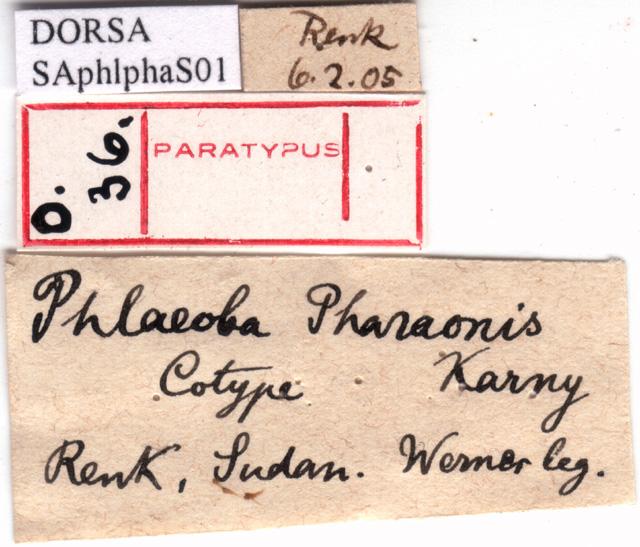 DORSA
SAphlphaS01
Renk
6.2.05
O. 36.
PARATYPUS
Phlaeoba Pharaonis
Cotype Karny
Renk, Sudan. Werner leg.